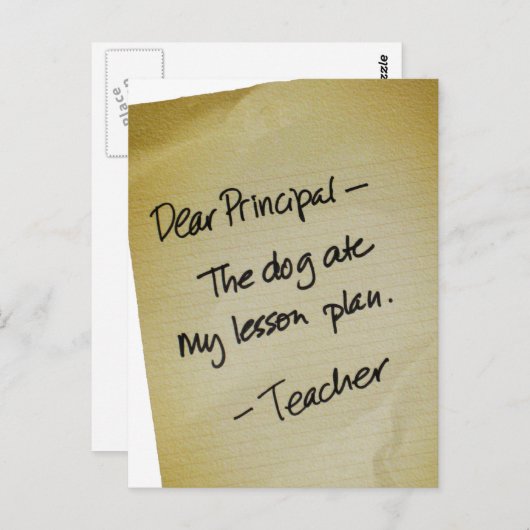 Dear Principal –
The dog ate
my lesson plan.
– Teacher
Place
zzle